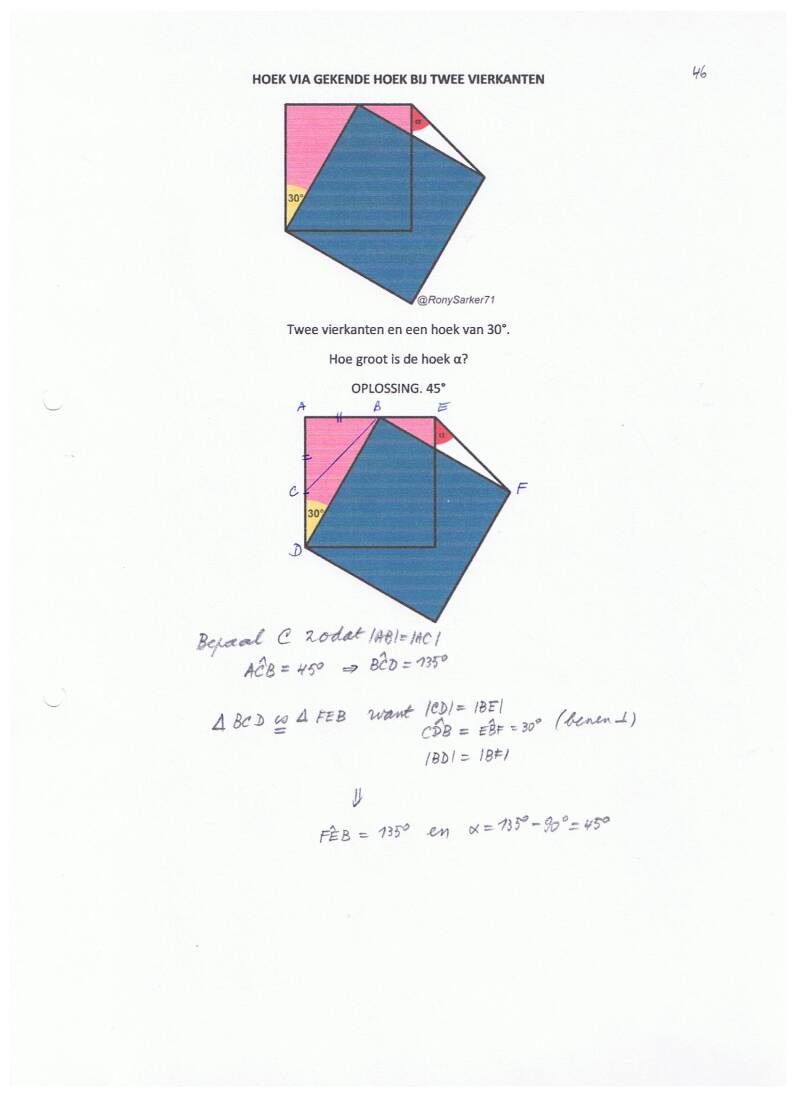 46
HOEK VIA GEKENDE HOEK BIJ TWEE VIERKANTEN
α
30°
@RonySarker71
Twee vierkanten en een hoek van 30°.
Hoe groot is de hoek α?
OPLOSSING. 45°
A B E
α
C F
30°
D
Bepaal C zodat |AB| = |AC|
AĈB = 45° ⇒ BĈD = 135°
Δ BCD ≅ Δ FEB want |CD| = |BE|
CD̂B = EB̂F = 30° (benen ⊥)
|BD| = |BF|
⇓
FÊB = 135° en α = 135° - 90° = 45°